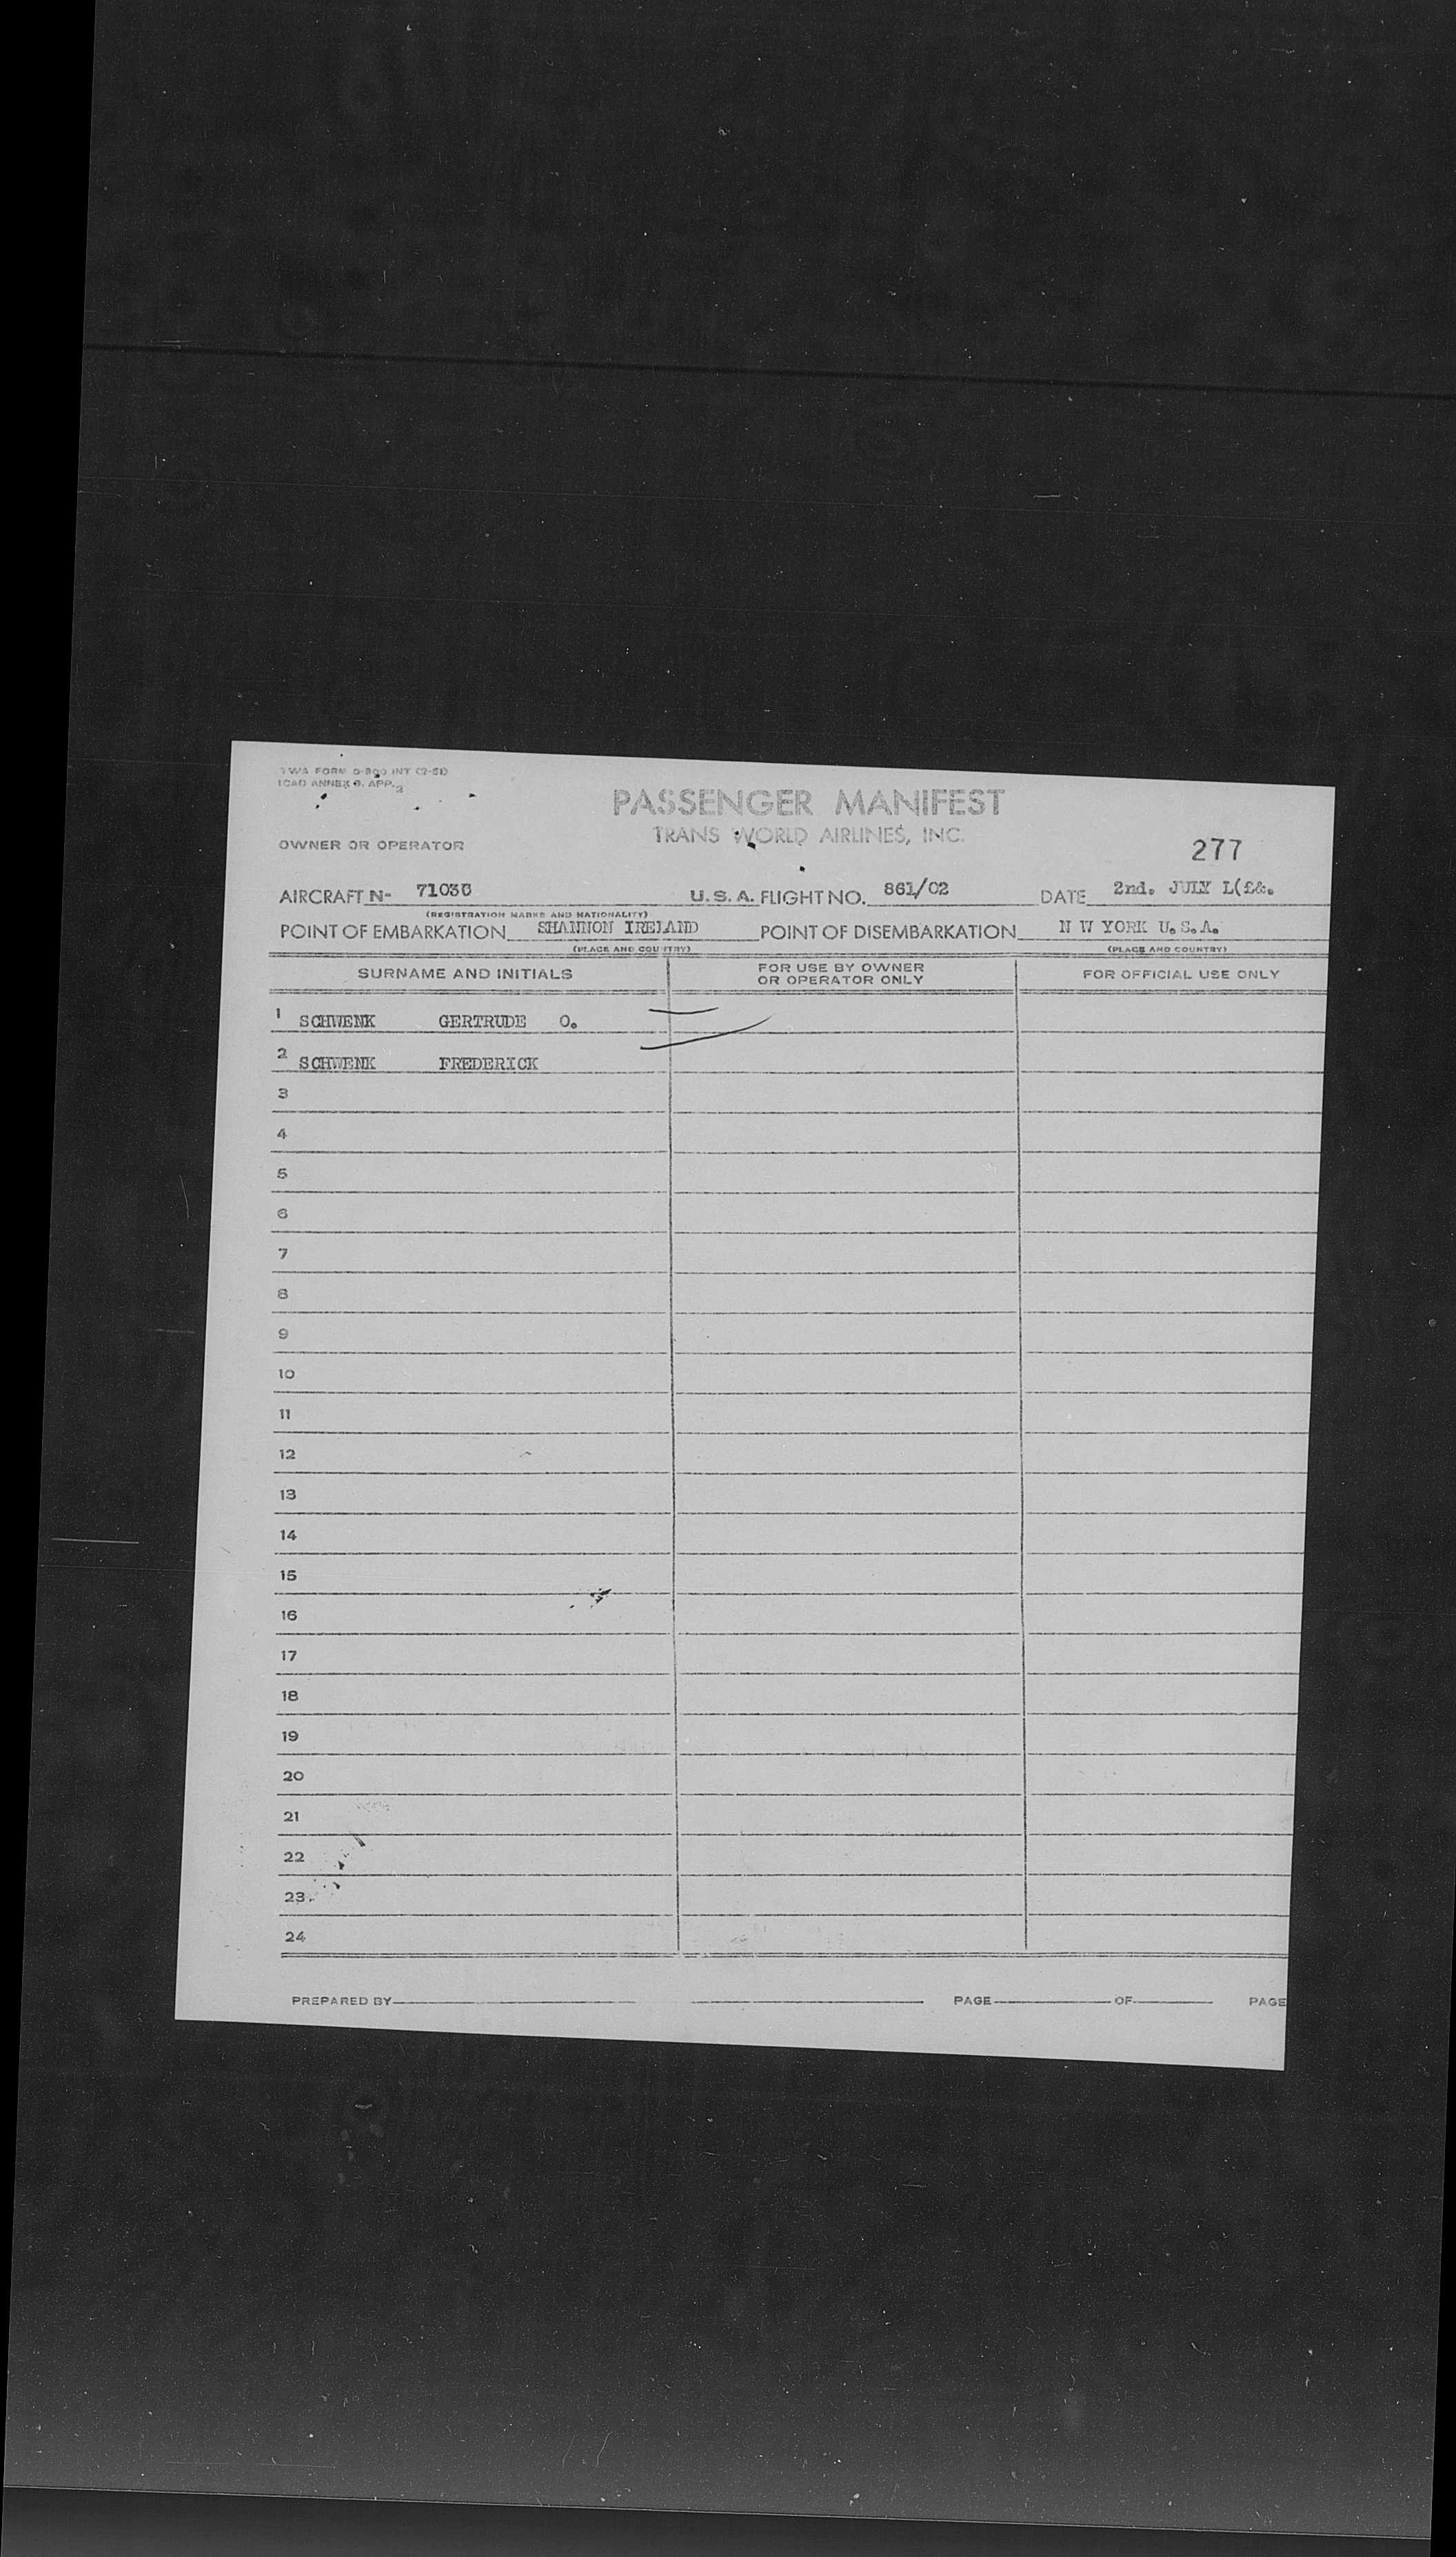 TWA FORM O-800 INT (2-51)
ICAO ANNEX 9. APP. 3
PASSENGER MANIFEST
TRANS WORLD AIRLINES, INC.
OWNER OR OPERATOR
277
AIRCRAFT N- U.S.A. FLIGHT NO. 861/02 DATE 2nd. JULY L(££.
(REGISTRATION MARKS AND NATIONALITY)
POINT OF EMBARKATION SHANNON IRELAND POINT OF DISEMBARKATION N W YORK U.S.A.
(PLACE AND COUNTRY) (PLACE AND COUNTRY)
SURNAME AND INITIALS FOR USE BY OWNER FOR OFFICIAL USE ONLY
OR OPERATOR ONLY
1 SCHWENK GERTRUDE O.
2 SCHWENK FREDERICK
3
4
5
6
7
8
9
10
11
12
13
14
15
16
17
18
19
20
21
22
23
24
PREPARED BY PAGE OF PAGE